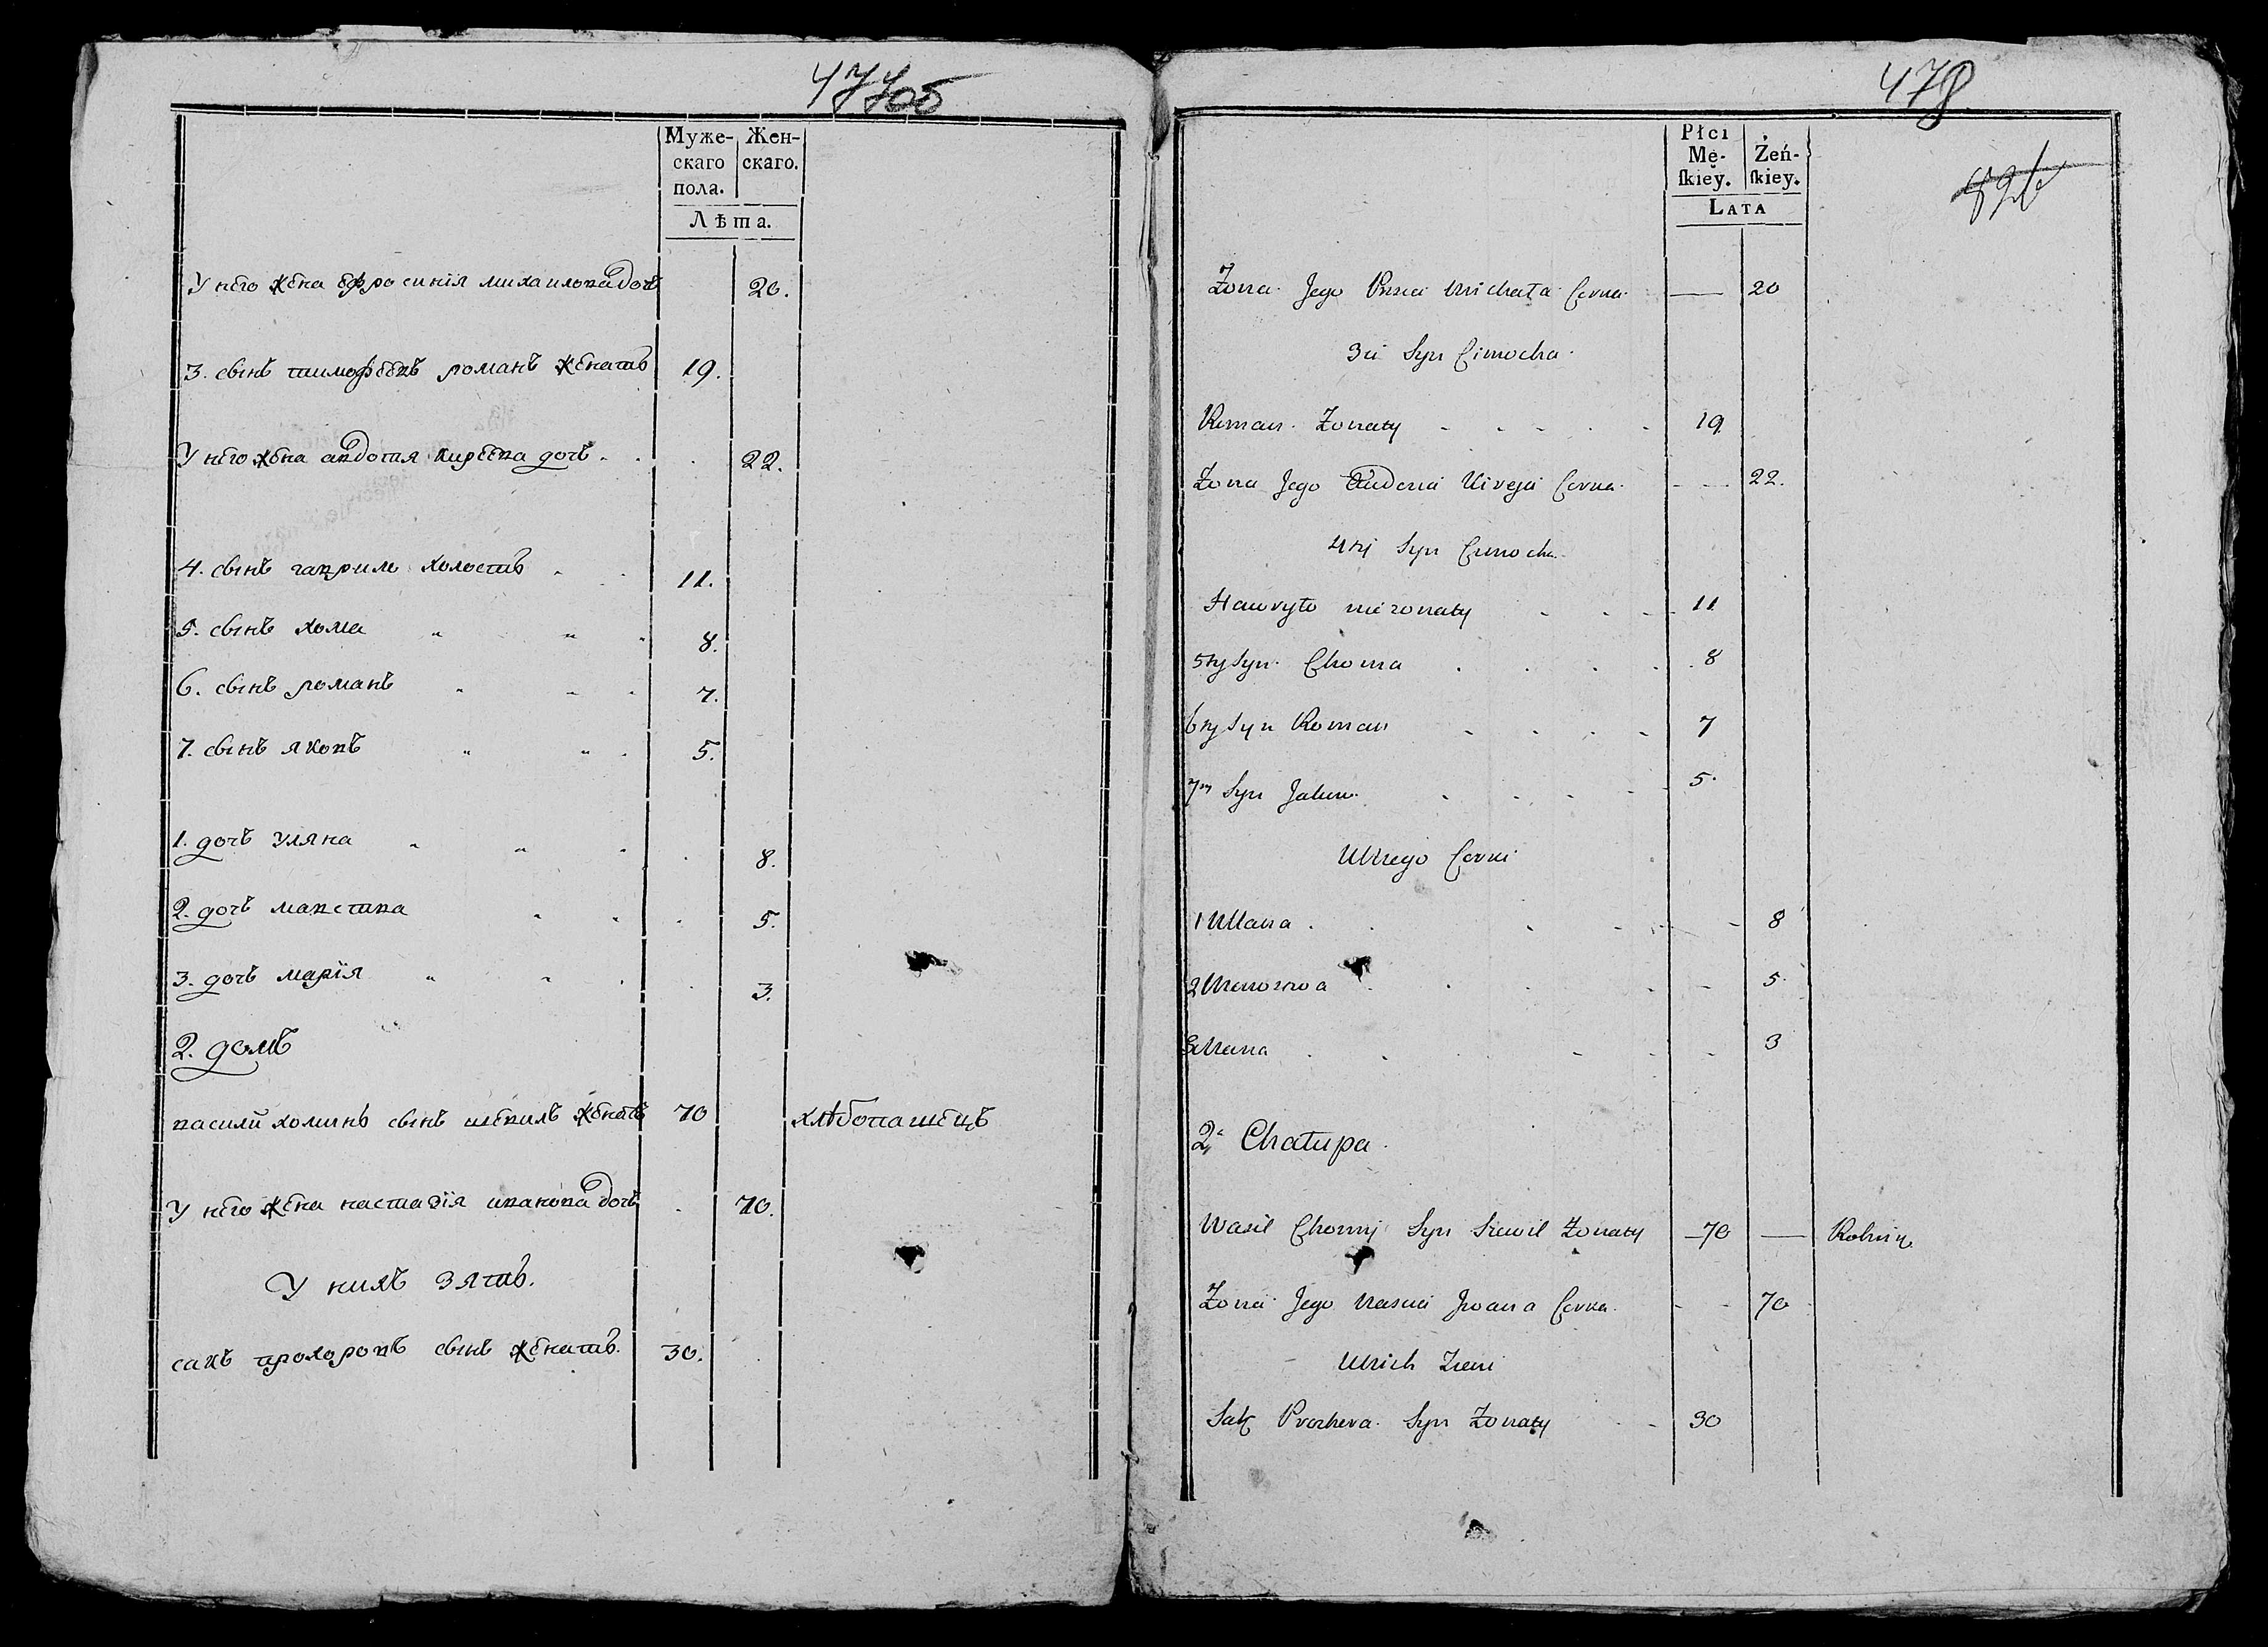 477об
Муже- Жен-
скаго скаго.
пола.
Лѣта.
У него жена ефросинія михаилова дочъ 20.
3. сынъ тимофеевъ романъ женатъ 19.
У него жена авдотія киреева дочъ 22.
4. сынъ гаврило холостъ 11.
5. сынъ хома " " 8.
6. сынъ романъ " " 7.
7. сынъ яковъ " " 5.
1. дочъ уляна " " 8.
2. дочъ 5.
3. дочъ марія " " 3.
2. домъ
василий хоминъ сынъ шевилъ женатъ 70 хлѣбопашецъ
У него жена настасія иванова дочъ 70.
У нихъ зятъ.
сакъ прохоровъ сынъ женатъ. 30.
478
Płci
Mę- Żeń-
ſkiey. ſkiey.
LATA
Zona Jego Michała Corka — 20
3ci Syn Cimocha
Roman Zonaty 19
Zona Jego Kireja Corka 22.
4ty Syn Cimocha
Hawryło niezonaty 11
5ty Syn Choma 8
6ty Syn Roman 7
7my Syn Jakuw 5
U Niego Corki
1 Ullana 8
2 5
3 3
2a Chałupa
Wasil Chomy Syn Szewil Zonaty 70 —
Zona Jego Nascia Iwana Corka 70
U Nich Zienc
Sak Prochora Syn Zonaty 30